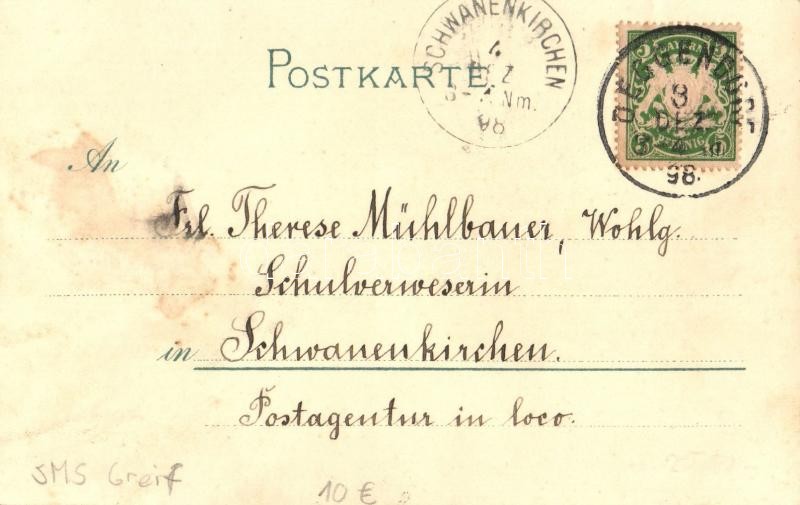 SCHWANENKIRCHEN
4
DEZ
Nm.
98
BAYERN
5 5
PFENNIG
DEGGENDORF
3
DEZ
98.
POSTKARTE.
An
Frl. Therese Mühlbauer, Wohlg.
Schulverweserin
in Schwanenkirchen.
Postagentur in loco.
SMS Greif
10 €